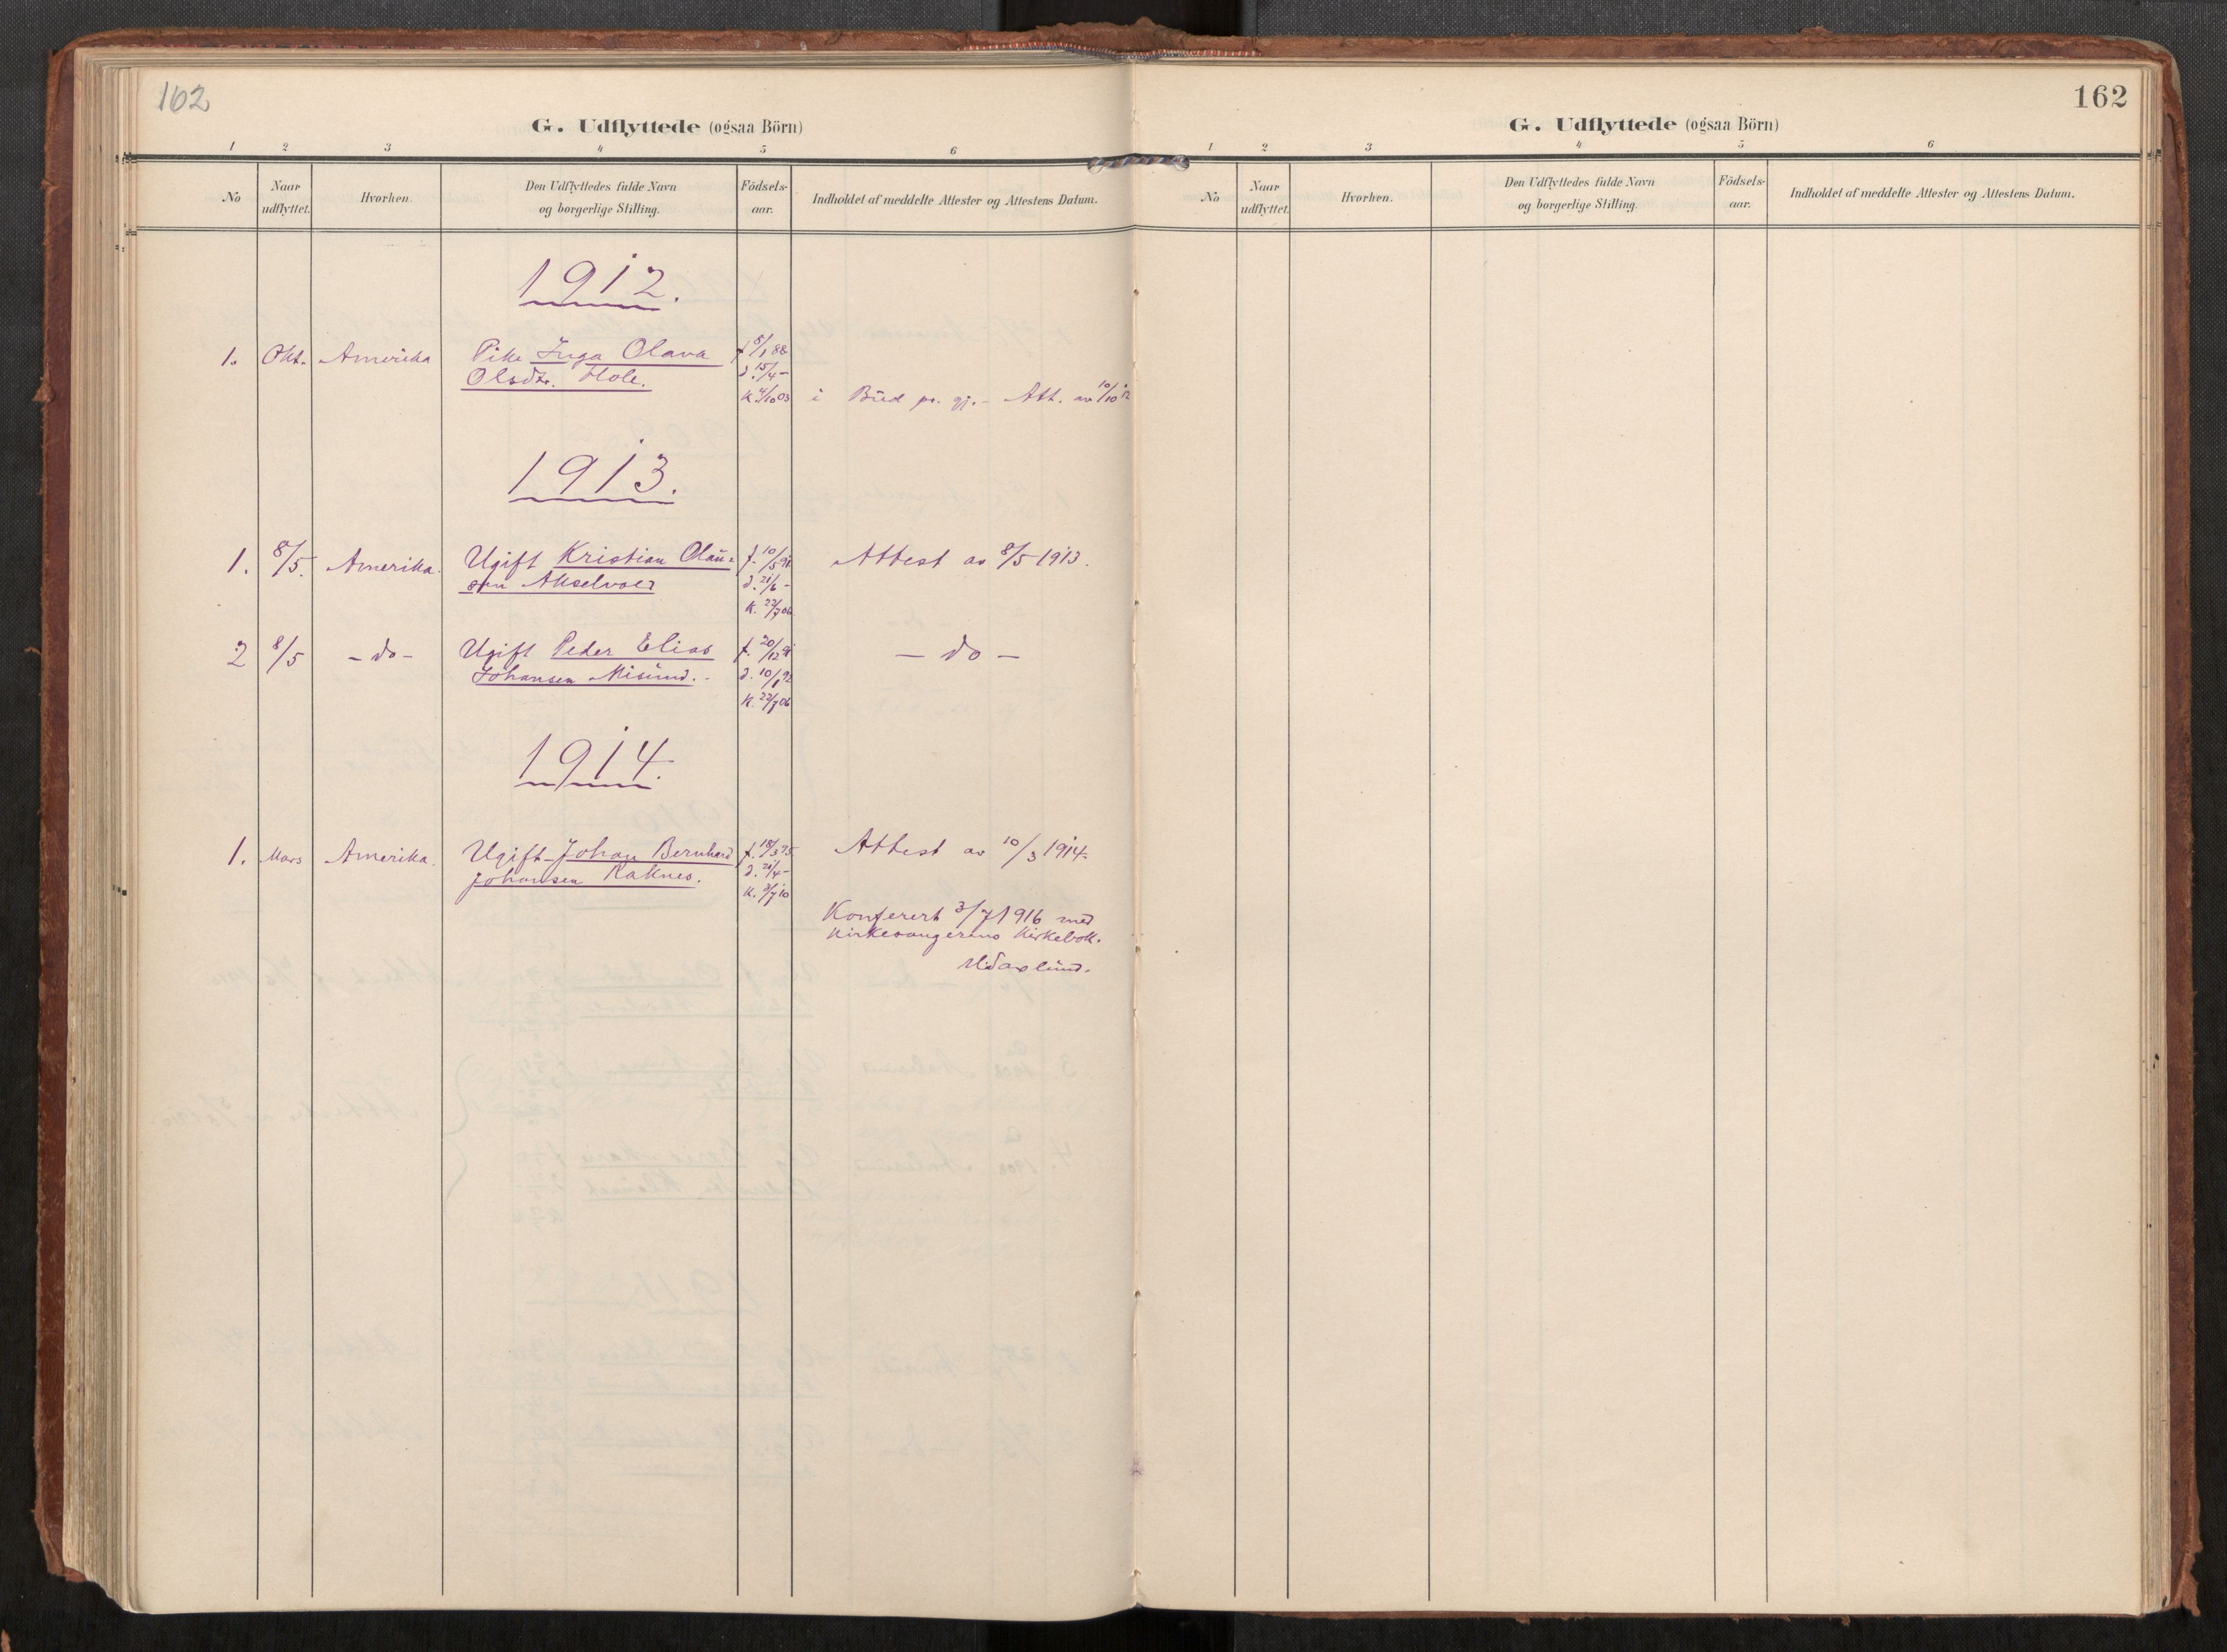 162
G. Udflyttede (ogsaa Börn)
1 2 3 4 5 6
No
Naar udflyttet.
Hvorhen.
Den Udflyttedes fulde Navn
og borgerlige Stilling.
Födsels-
aar.
Indholdet af meddelte Attester og Attestens Datum.
1912.
1. Okt. Amerika Pike Inga Olava f 8/1 88
Olsdtr. Hole. d. 15/4 -
K. 4/10 03 i Bud pr. gj. - Att. av 10/10 12
1913.
1. 8/5. Amerika. Ugift Kristian Olau= f. 10/5 91 Attest av 8/5 1913.
sen Akselvold d. 21/6 -
K. 22/7 06
2 8/5 - do - Ugift Peder Elias f. 20/12 91 - do -
Johansen Misund. d. 10/1 92
K. 22/7 06
1914.
1. Mars Amerika. Ugift Johan Bernhard f. 18/3 95 Attest av 10/3 1914.
Johansen Raknes. d. 21/4 -
K. 3/7 10
Konferert 3/7 1916 med
Kirkesangerens Kirkebok.
162
G. Udflyttede (ogsaa Börn)
1 2 3 4 5 6
No
Naar udflyttet.
Hvorhen.
Den Udflyttedes fulde Navn
og borgerlige Stilling.
Födsels-
aar.
Indholdet af meddelte Attester og Attestens Datum.